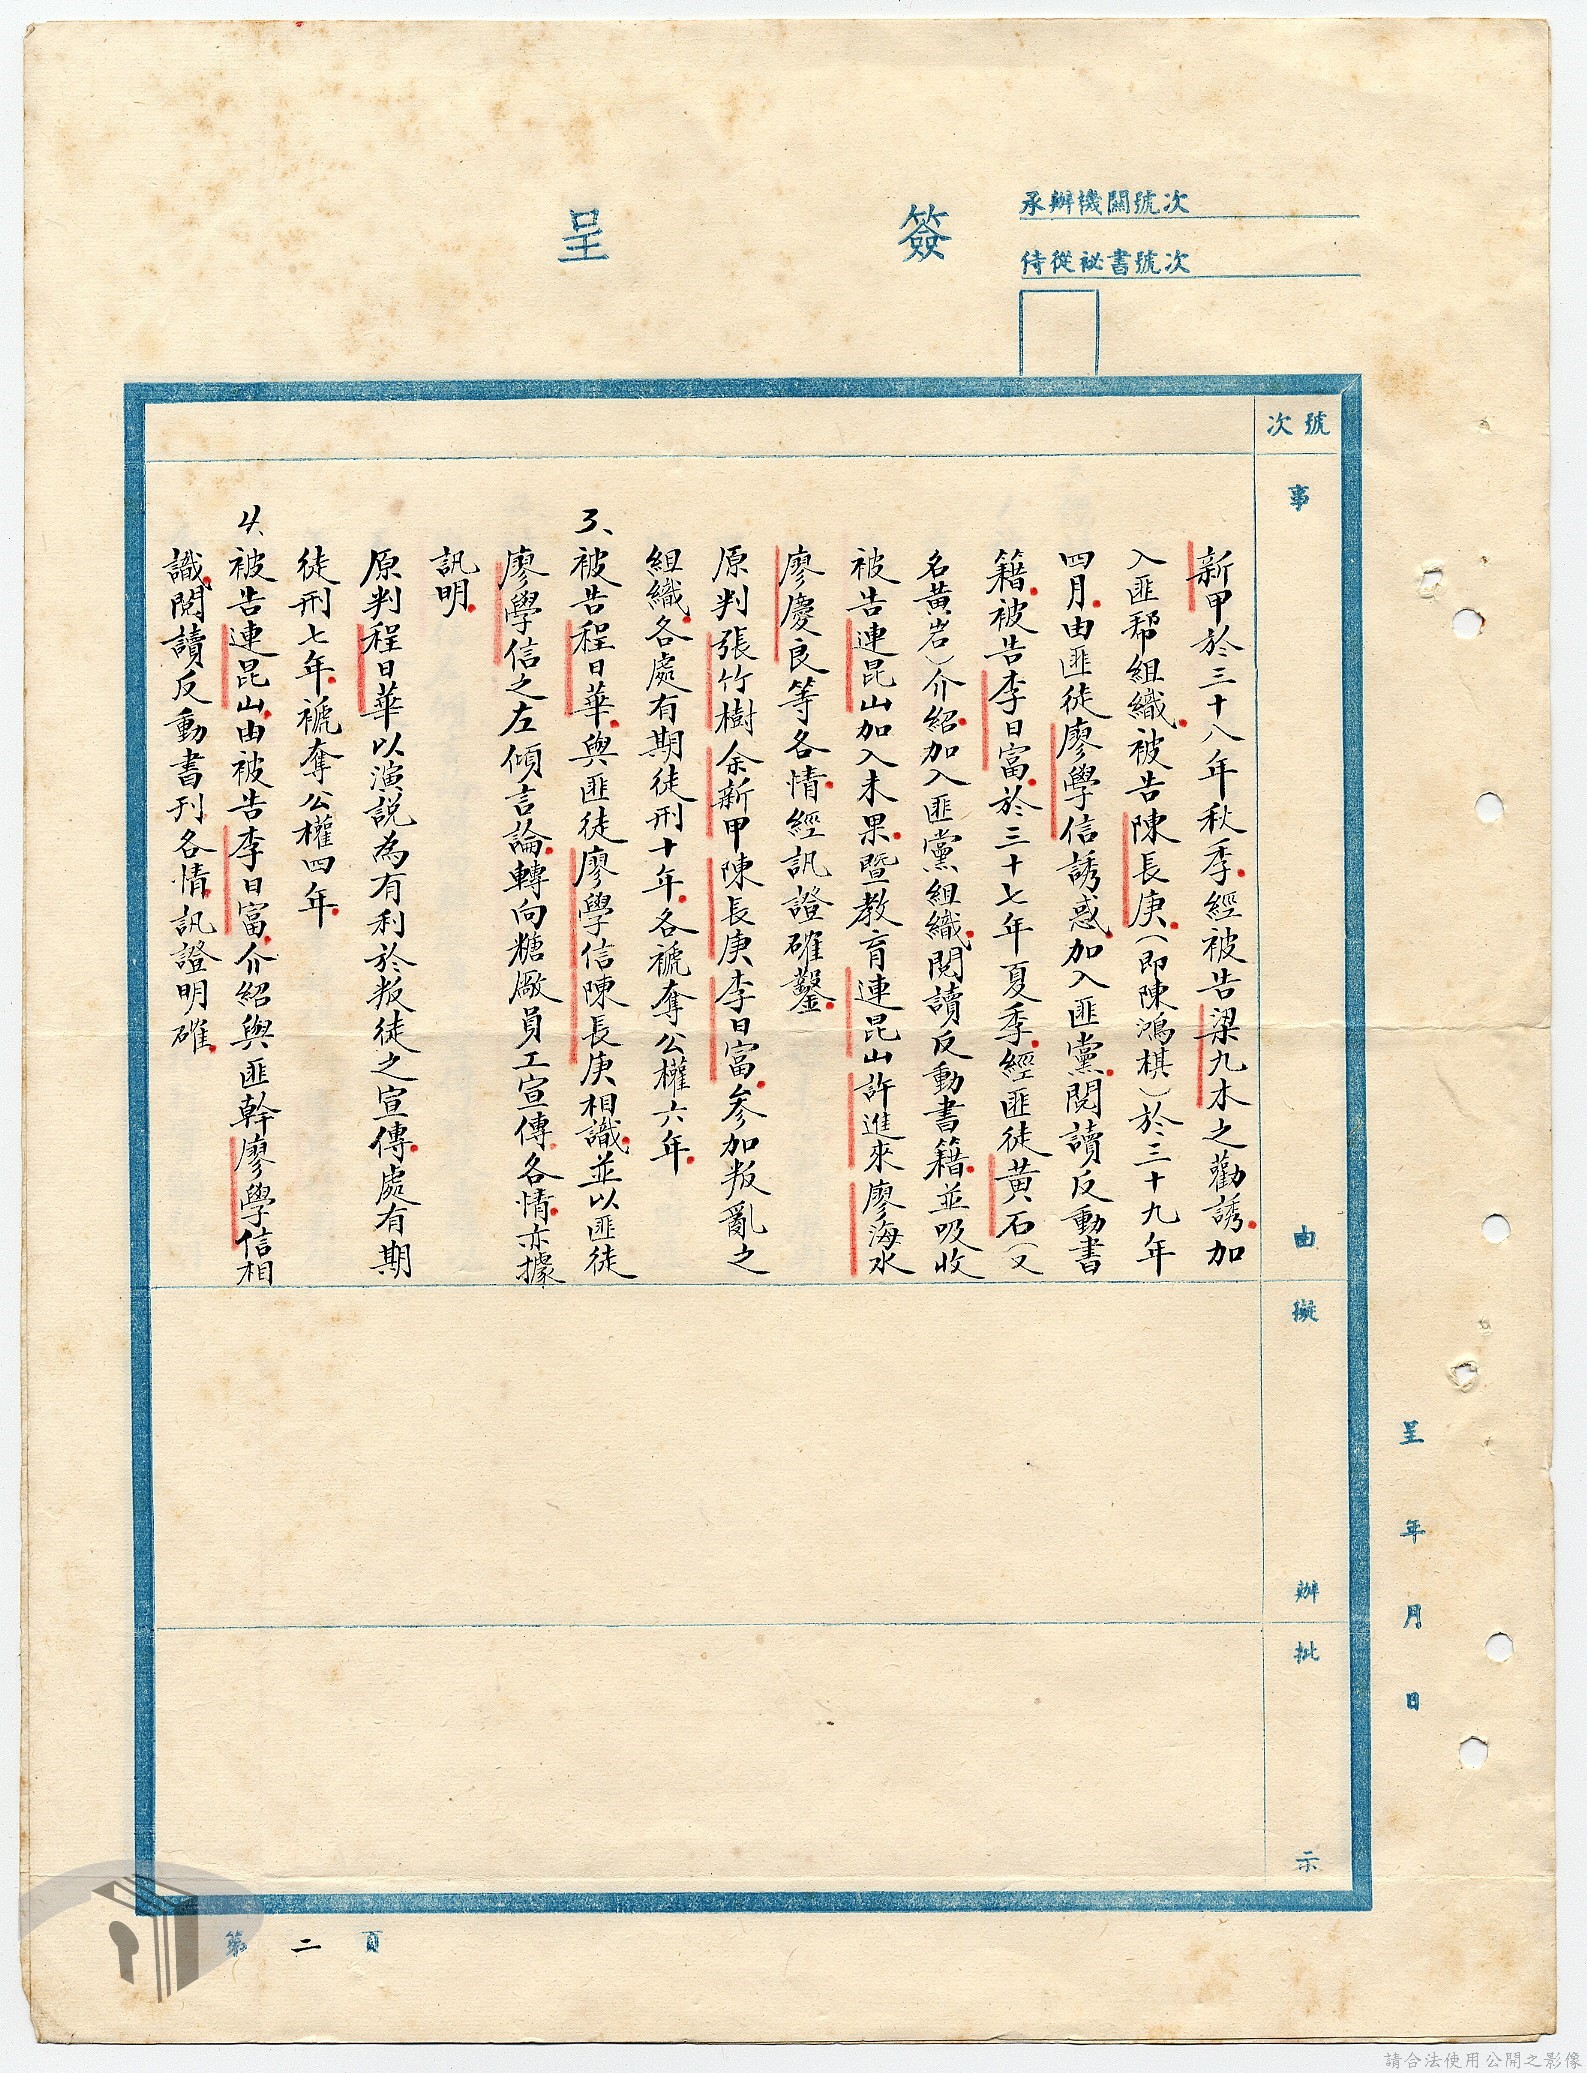 簽呈
承辦機關號次
侍從祕書號次
號次
事由
擬辦
批示
呈 年 月 日
新甲於三十八年秋季。經被告梁九木之勸誘。加
入匪幫組織。被告陳長庚。(即陳鴻棋)於三十九年
四月。由匪徒廖學信誘惑。加入匪黨。閱讀反動書
籍。被告李日富。於三十七年夏季。經匪徒黃石(又
名黃岩)介紹。加入匪黨組織。閱讀反動書籍。並吸收
被告連昆山加入未果。暨教育連昆山許進來廖海水
廖慶良等各情。經訊證確鑿。
原判張竹樹余新甲陳長庚李日富。參加叛亂之
組織。各處有期徒刑十年。各褫奪公權六年。
3、被告程日華。與匪徒廖學信陳長庚相識。並以匪徒
廖學信之左傾言論。轉向糖廠員工宣傳。各情。亦據
訊明。
原判程日華以演說為有利於叛徒之宣傳。處有期
徒刑七年。褫奪公權四年。
4、被告連昆山。由被告李日富。介紹與匪幹廖學信相
識。閱讀反動書刊。各情。訊證明確。
第二頁
請合法使用公開之影像